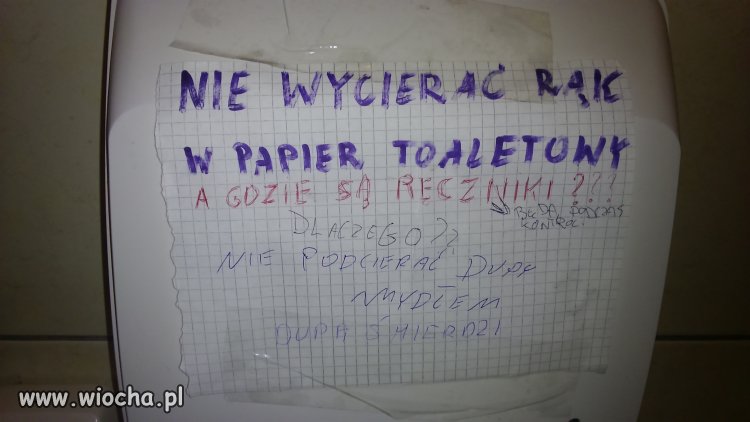 NIE WYCIERAĆ RĄK
W PAPIER TOALETOWY
A GDZIE SĄ RĘCZNIKI???
BĘDĄ PODCZAS
KONTROLI
DLACZEGO??
NIE PODCIERAĆ DUPY
MYDŁEM
DUPA ŚMIERDZI
www.wiocha.pl